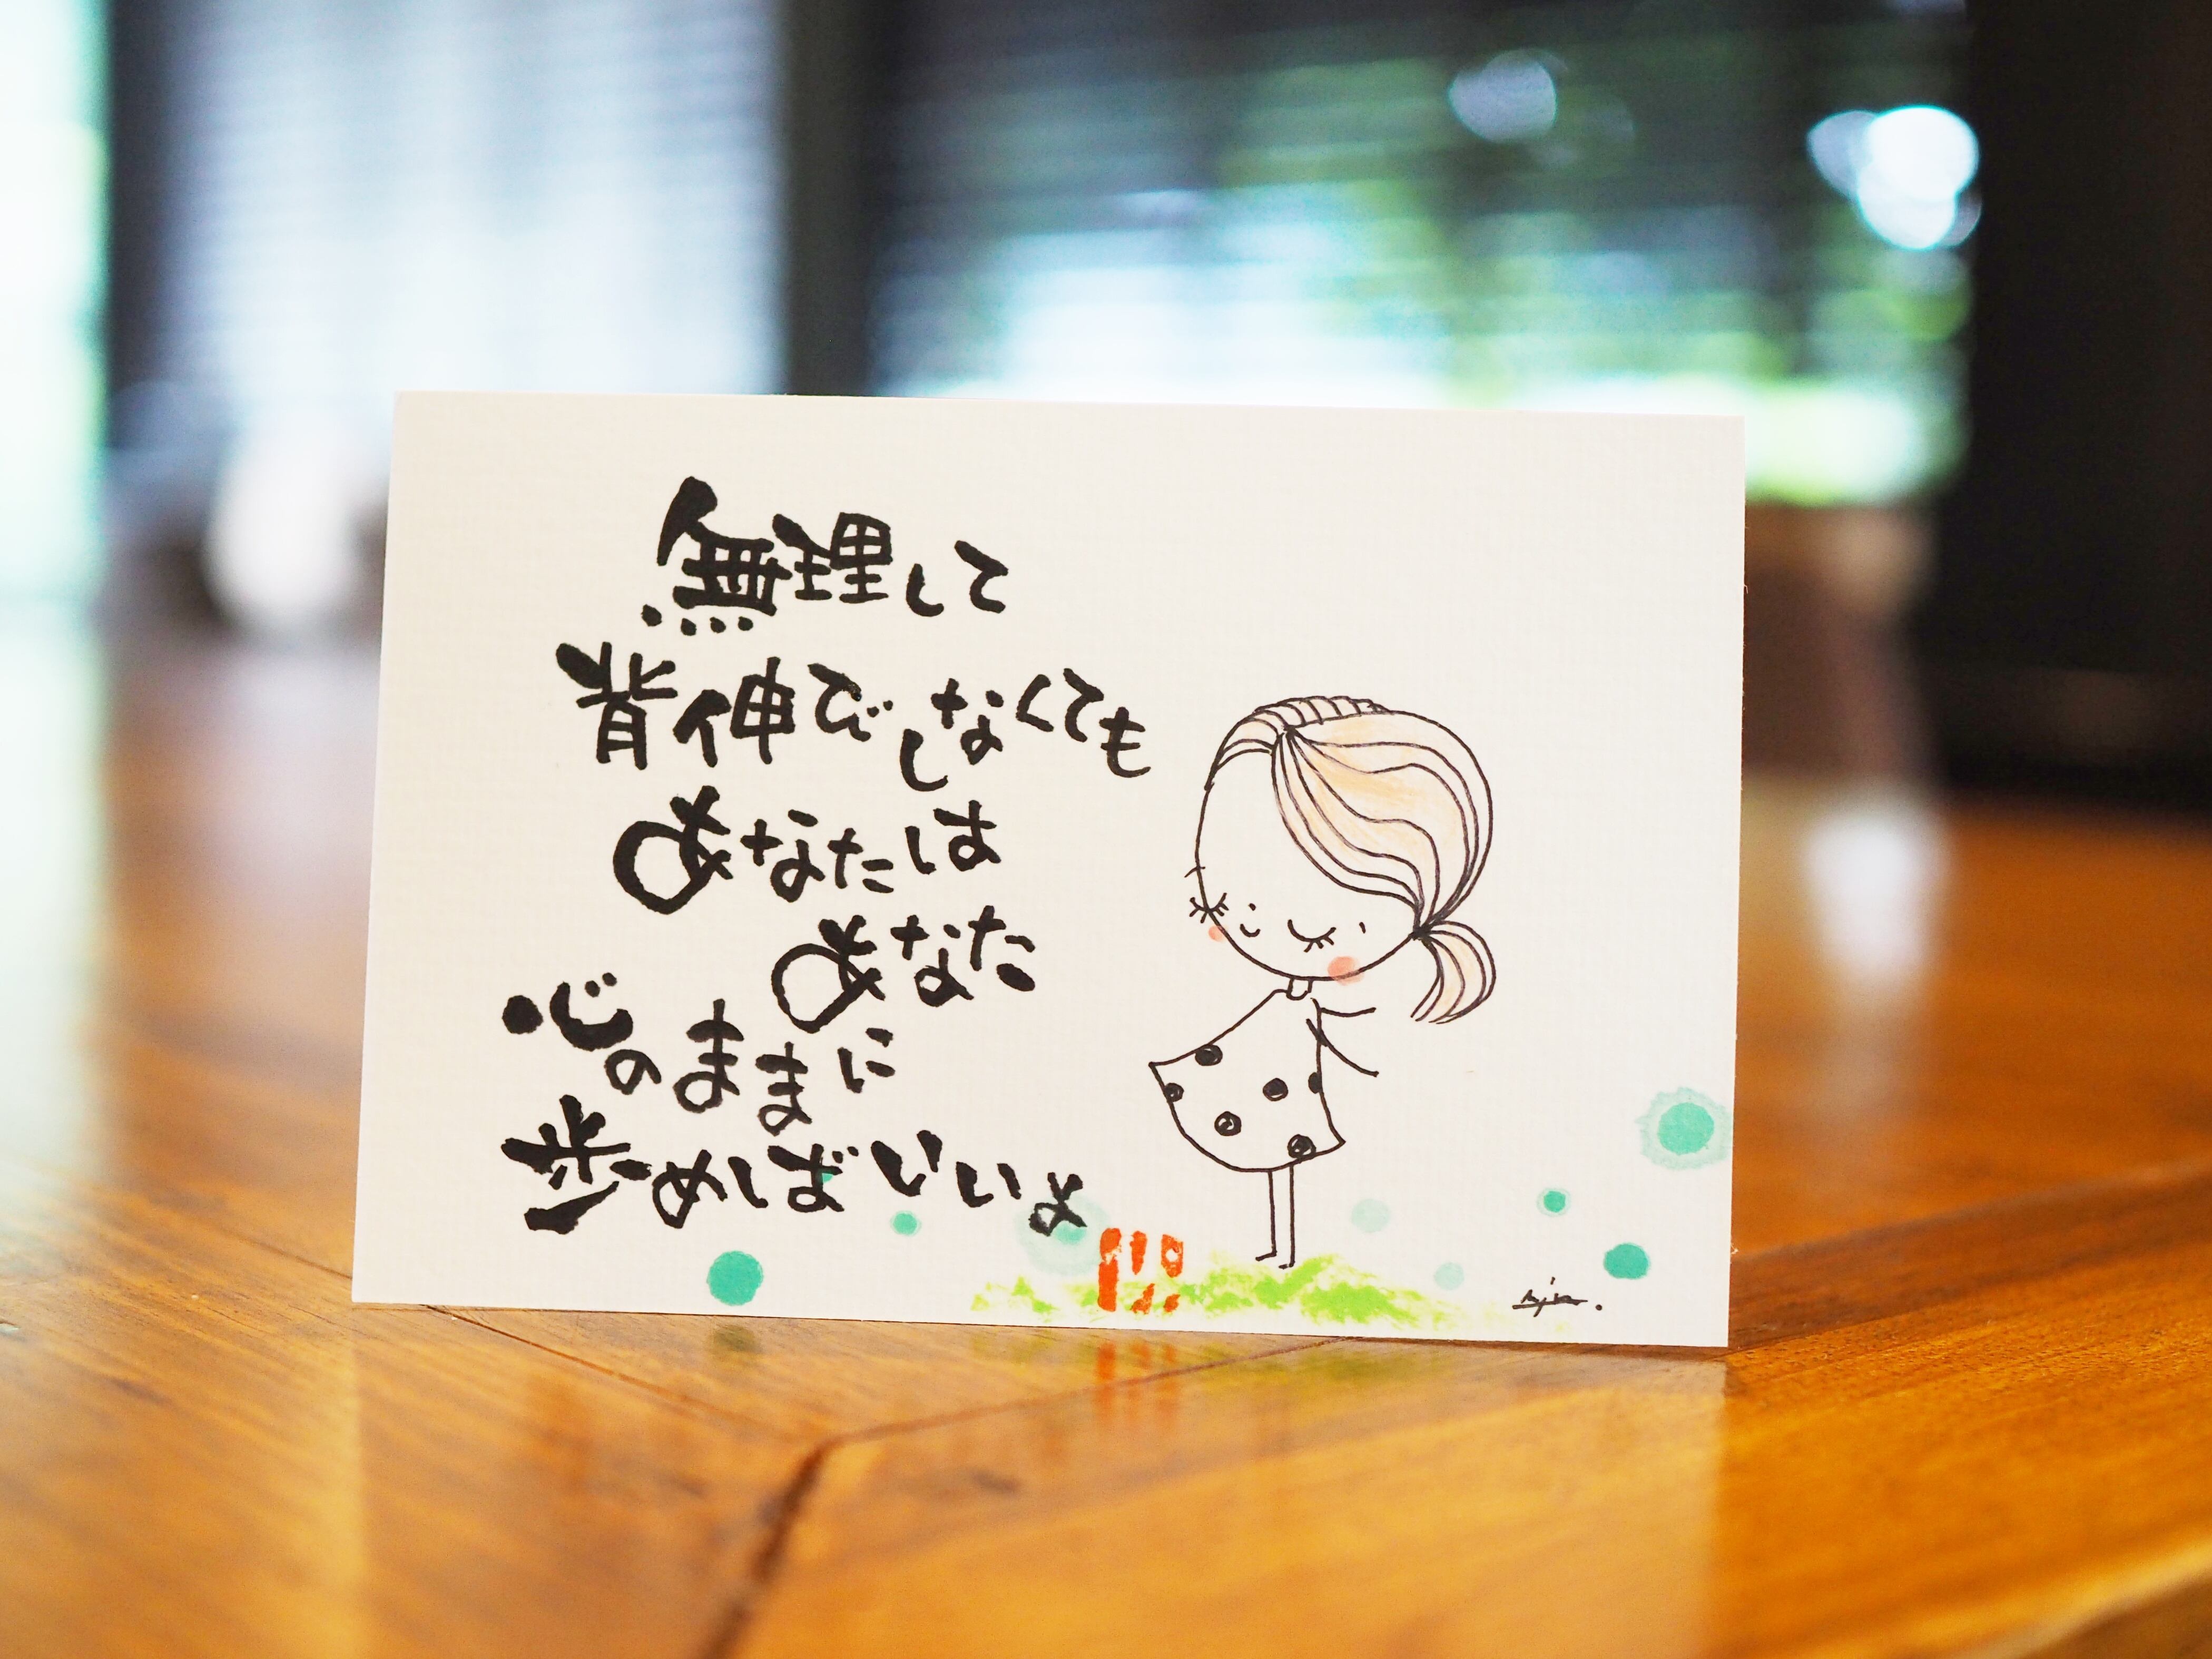 無理して
背伸びしなくても
あなたは
あなた
心のままに
歩めばいいよ